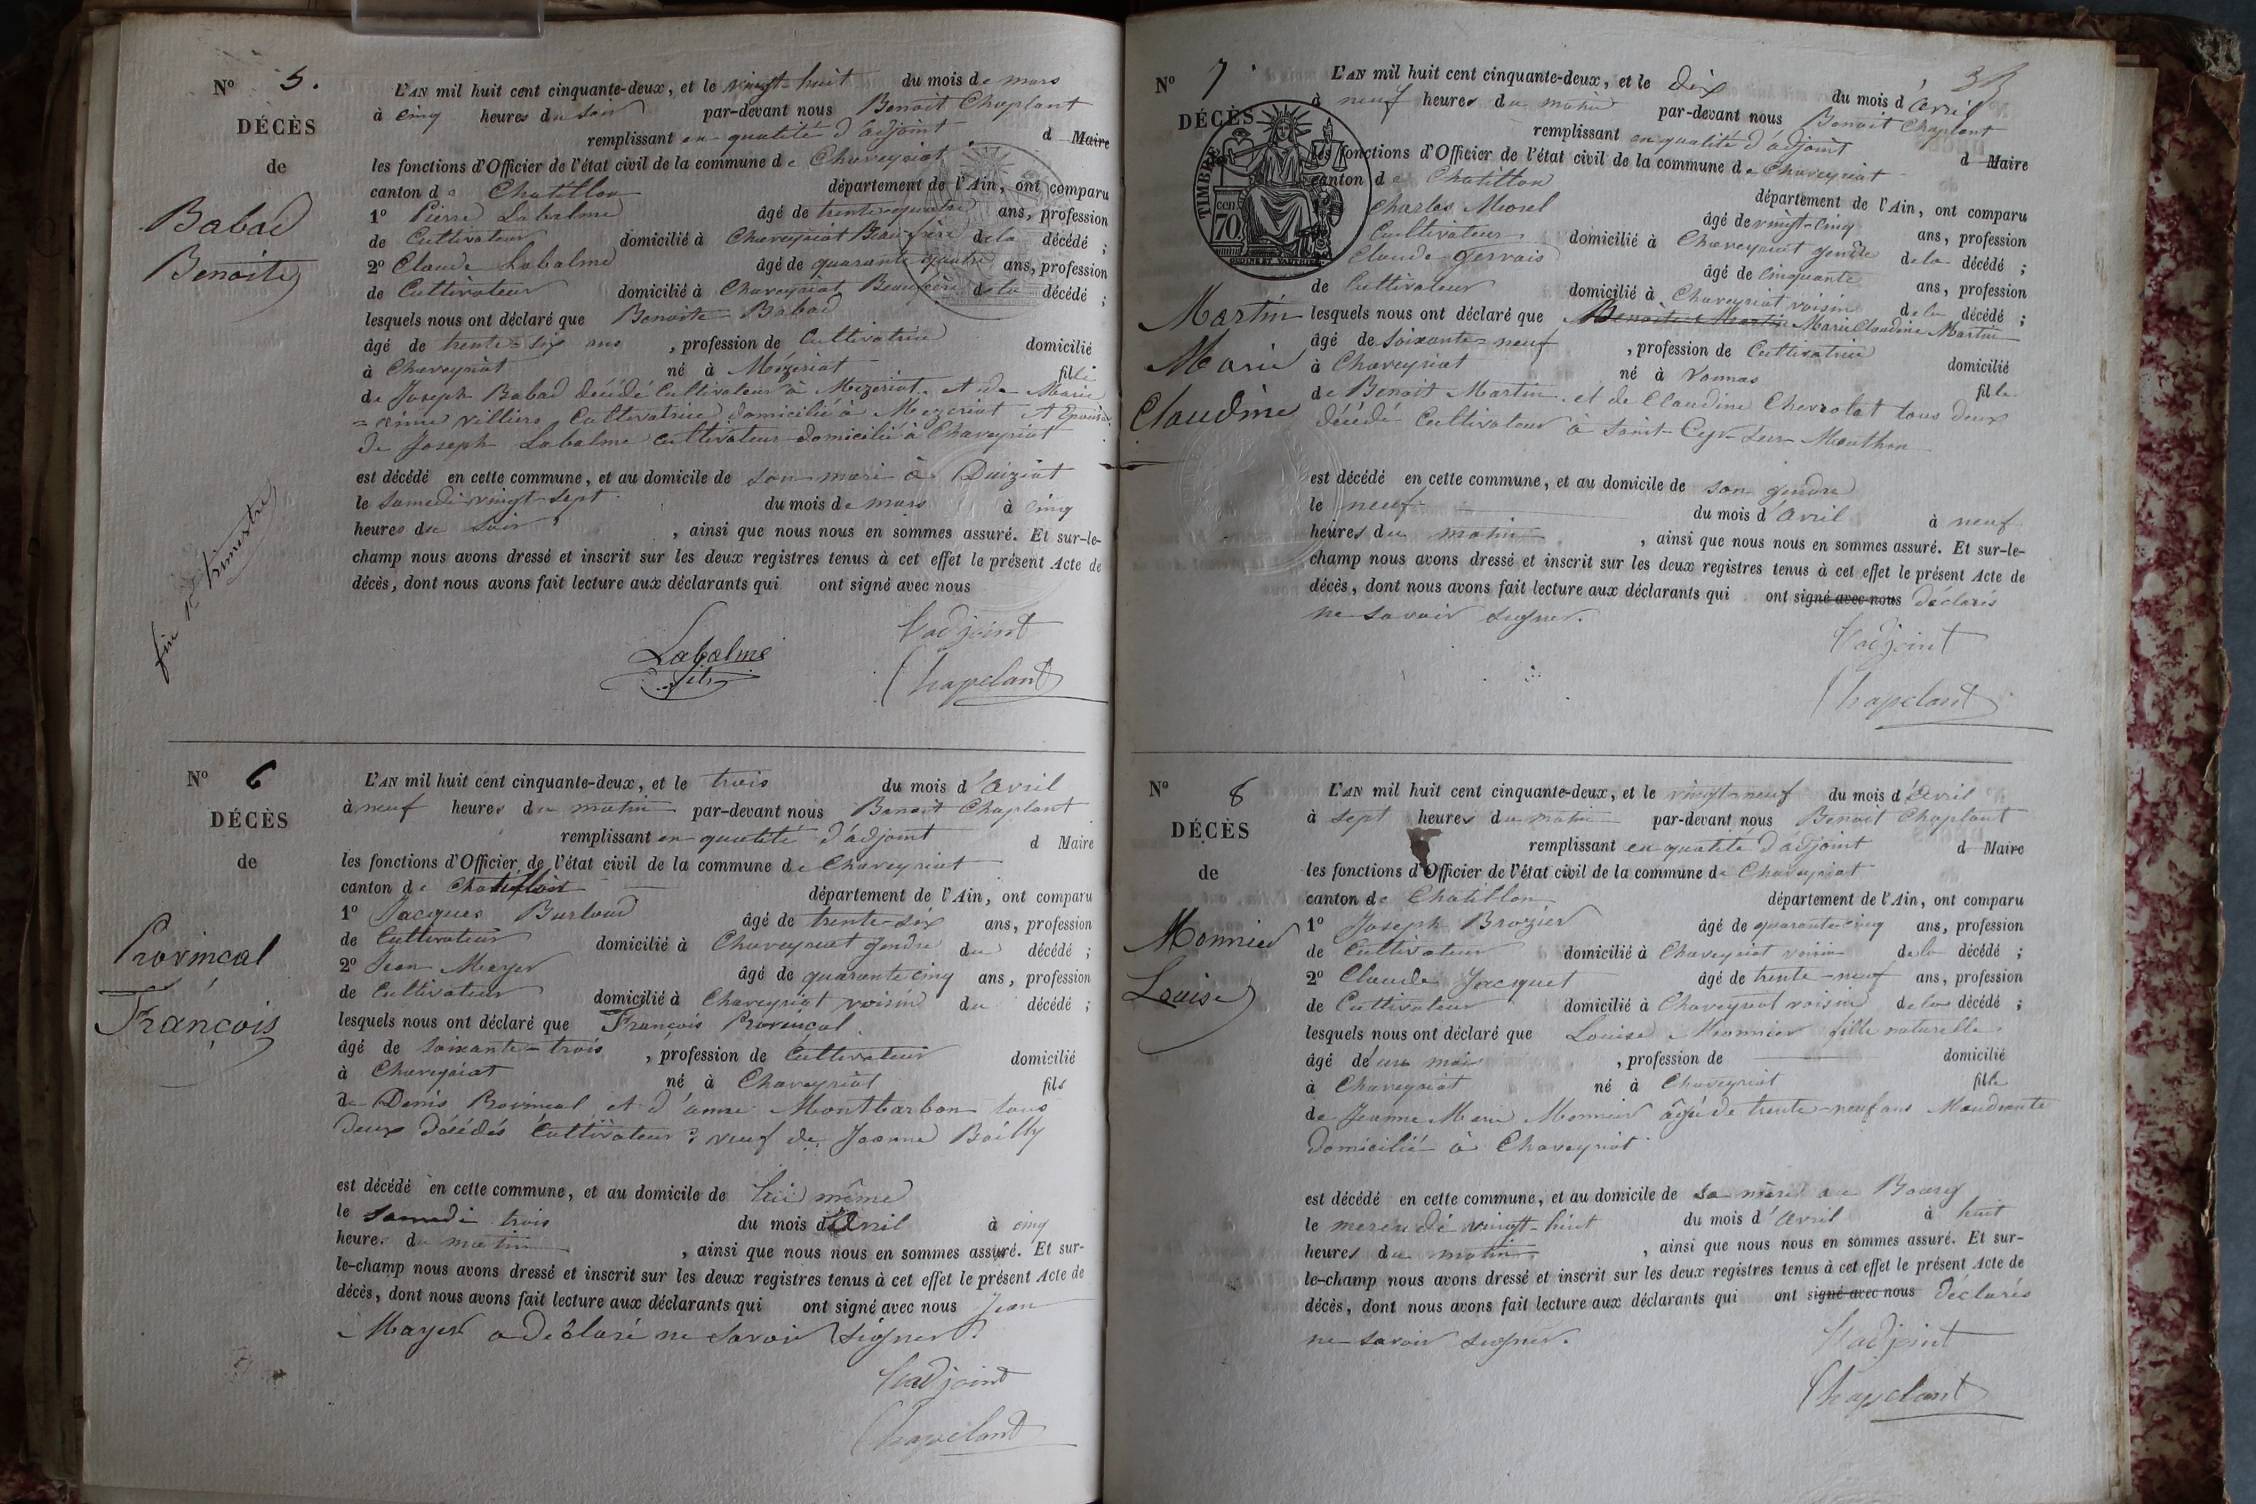 N° 5.
DÉCÈS
de
Babad
Benoite
fin 1er trimestre
L'AN mil huit cent cinquante-deux, et le vingt-huit du mois de mars
à cinq heures du soir par-devant nous Benoit Chaplant
remplissant en qualité d'adjoint d Maire
les fonctions d'Officier de l'état civil de la commune de Chaveyriat
canton de Chatillon département de l'Ain, ont comparu
1° Pierre Labalme âgé de trente-quatre ans, profession
de Cultivateur domicilié à Chaveyriat Beau frère de la décédé ;
2° Claude Labalme âgé de quarante-quatre ans, profession
de Cultivateur domicilié à Chaveyriat Beaufrère de la décédé ;
lesquels nous ont déclaré que Benoite Babad
âgé de trente-six ans , profession de Cultivatrice domicilié
à Chaveyriat né à Mézériat fille
de Joseph Babad décédé Cultivateur à Mezeriat et de Marie
villiers Cultivatrice domicilié à Mezeriat et Epouse
de Joseph Labalme cultivateur domicilié à Chaveyriat
est décédé en cette commune, et au domicile de son mari à Duiziat
le samedi vingt-sept du mois de mars à cinq
heures du soir , ainsi que nous nous en sommes assuré. Et sur-le-
champ nous avons dressé et inscrit sur les deux registres tenus à cet effet le présent Acte de
décès, dont nous avons fait lecture aux déclarants qui ont signé avec nous
l'adjoint
Labalme fils
Chapelant
N° 6
DÉCÈS
de
Provincal
François
L'AN mil huit cent cinquante-deux, et le trois du mois d'avril
à neuf heures du matin par-devant nous Benoit Chaplant
remplissant en qualité d'adjoint d Maire
les fonctions d'Officier de l'état civil de la commune de Chaveyriat
canton de Chatillon département de l'Ain, ont comparu
1° Jacques Burtoud âgé de trente-six ans, profession
de Cultivateur domicilié à Chaveyriat gendre du décédé ;
2° Jean Mayer âgé de quarante cinq ans, profession
de Cultivateur domicilié à Chaveyriat voisin du décédé ;
lesquels nous ont déclaré que François Provincal
âgé de soixante-trois , profession de Cultivateur domicilié
à Chaveyriat né à Chaveyriat fils
de Denis Provincal et d'anne Montbarbon tous
deux décédés Cultivateur ; veuf de Jeanne Boilly
est décédé en cette commune, et au domicile de lui même
le samedi trois du mois d'Avril à cinq
heures du matin , ainsi que nous nous en sommes assuré. Et sur-
le-champ nous avons dressé et inscrit sur les deux registres tenus à cet effet le présent Acte de
décès, dont nous avons fait lecture aux déclarants qui ont signé avec nous Jean
Mayer a déclaré ne savoir signer.
l'adjoint
Chapelant
N° 7
DÉCÈS
TIMBRE
CEN 70
Martin
Marie
Claudine
L'AN mil huit cent cinquante-deux, et le dix du mois d'avril
à neuf heures du matin par-devant nous Benoit Chaplant
remplissant en qualité d'adjoint d Maire
les fonctions d'Officier de l'état civil de la commune de Chaveyriat
canton de Chatillon département de l'Ain, ont comparu
Charles Morel âgé de vingt-cinq ans, profession
Cultivateur domicilié à Chaveyriat gendre de la décédé ;
Claude Gervais âgé de cinquante ans, profession
de Cultivateur domicilié à Chaveyriat voisin de la décédé ;
lesquels nous ont déclaré que Benoite Martin Marie Claudine Martin
âgé de soixante-neuf , profession de Cultivatrice domicilié
à Chaveyriat né à Vonnas fille
de Benoit Martin et de Claudine Chevrolat tous deux
décédé Cultivateur à Saint-Cyr-sur-Menthon
est décédé en cette commune, et au domicile de son gendre
le neuf du mois d'avril à neuf
heures du matin , ainsi que nous nous en sommes assuré. Et sur-le-
champ nous avons dressé et inscrit sur les deux registres tenus à cet effet le présent Acte de
décès, dont nous avons fait lecture aux déclarants qui ont signé avec nous déclarés
ne savoir signer.
l'adjoint
Chapelant
N° 8
DÉCÈS
de
Monnier
Louise
L'AN mil huit cent cinquante-deux, et le vingt-neuf du mois d'avril
à sept heures du matin par-devant nous Benoit Chaplant
remplissant en qualité d'adjoint d Maire
les fonctions d'Officier de l'état civil de la commune de Chaveyriat
canton de Chatillon département de l'Ain, ont comparu
1° Joseph Brozier âgé de quarante cinq ans, profession
de Cultivateur domicilié à Chaveyriat voisin de la décédé ;
2° Claude Jacquet âgé de trente-neuf ans, profession
de Cultivateur domicilié à Chaveyriat voisin de la décédé ;
lesquels nous ont déclaré que Louise Monnier fille naturelle
âgé de un mois , profession de domicilié
à Chaveyriat né à Chaveyriat fille
de Jeanne Marie Monnier âgé de trente-neuf ans Mendiante
domicilié à Chaveyriat
est décédé en cette commune, et au domicile de sa mère au Bourg
le mercredi vingt-huit du mois d'avril à huit
heures du matin , ainsi que nous nous en sommes assuré. Et sur-
le-champ nous avons dressé et inscrit sur les deux registres tenus à cet effet le présent Acte de
décès, dont nous avons fait lecture aux déclarants qui ont signé avec nous déclarés
ne savoir signer.
l'adjoint
Chapelant